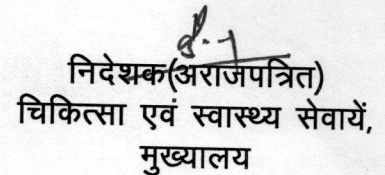 निदेशक(अराजपत्रित)
चिकित्सा एवं स्वास्थ्य सेवायें,
मुख्यालय